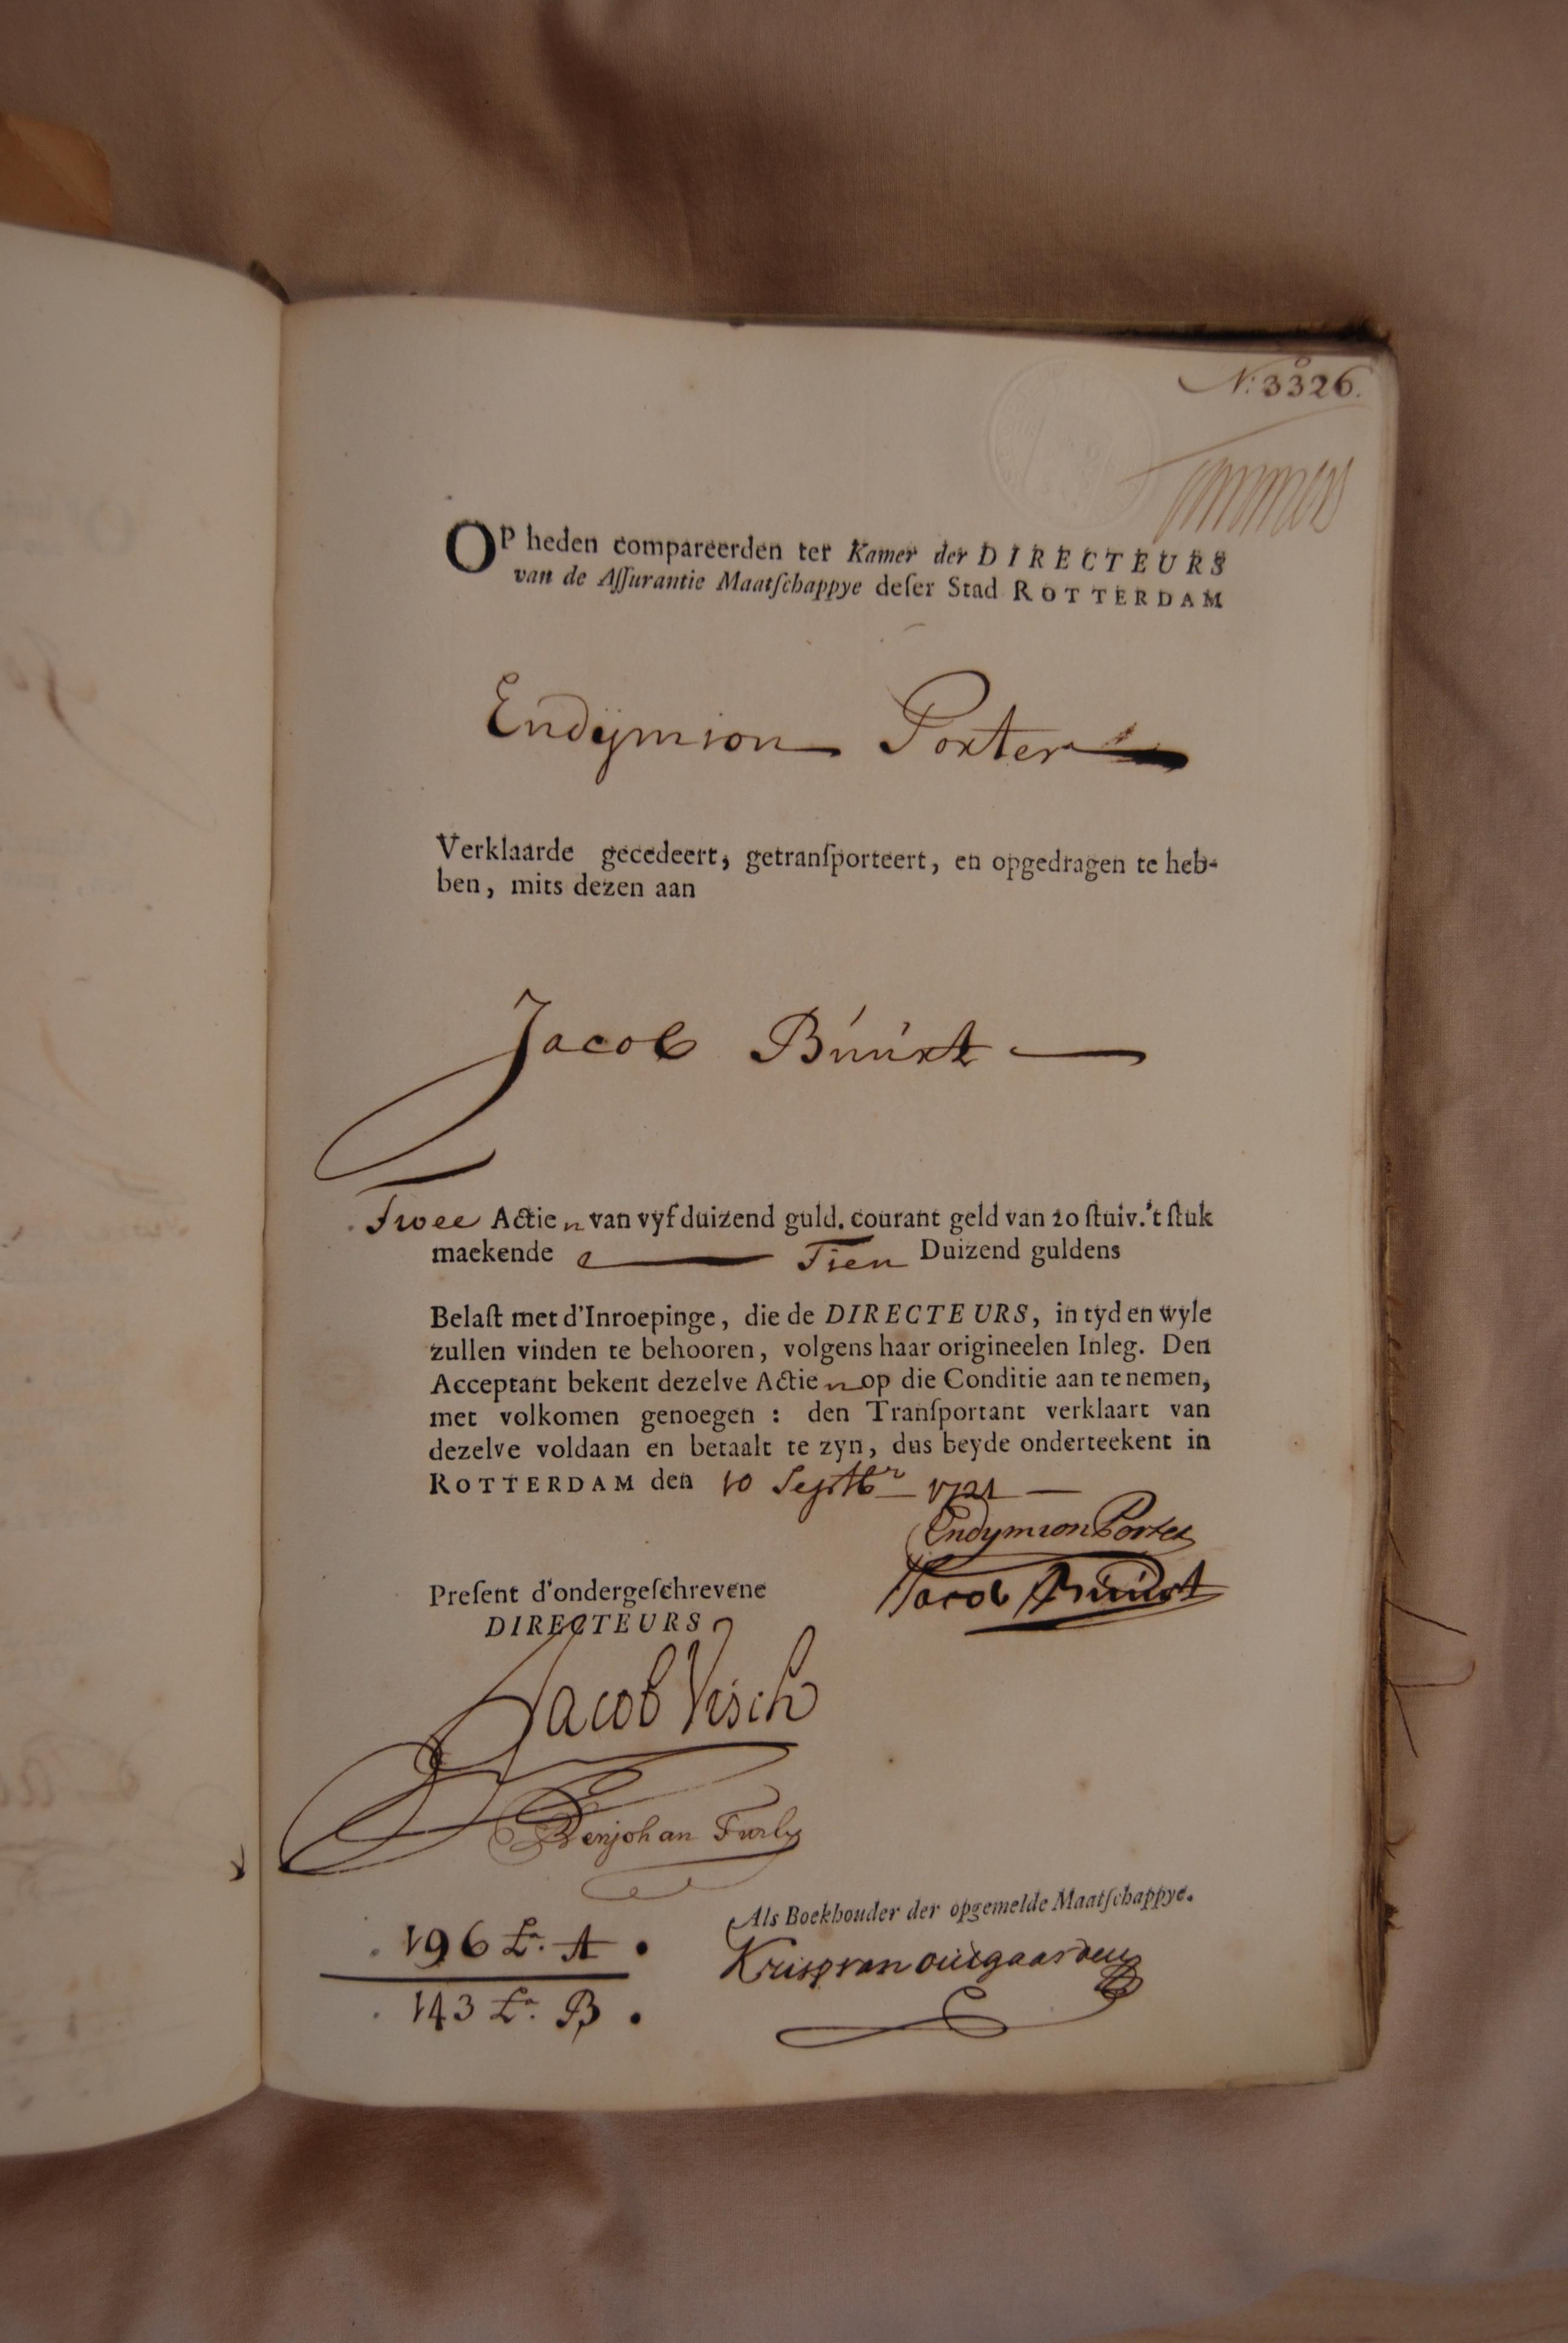 No: 3326.
OP heden compareerden ter Kamer der DIRECTEURS
van de Aſſurantie Maatſchappye deſer Stad ROTTERDAM
Endÿmion Porter
Verklaarde gecedeert, getranſporteert, en opgedragen te heb-
ben, mits dezen aan
Jacob Búúrt
Twee Actie n van vyf duizend guld. courant geld van 20 ſtuiv. 't ſtuk
maekende Tien Duizend guldens
Belaſt met d'Inroepinge, die de DIRECTEURS, in tyd en wyle
zullen vinden te behooren, volgens haar origineelen Inleg. Den
Acceptant bekent dezelve Actie n op die Conditie aan te nemen,
met volkomen genoegen : den Tranſportant verklaart van
dezelve voldaan en betaalt te zyn, dus beyde onderteekent in
ROTTERDAM den 10 Septbr 1721
Endymion Porter
Jacob Búúrt
Preſent d'ondergeſchrevene
DIRECTEURS
Jacob Visch
Benjohan Furly
Als Boekhouder der opgemelde Maatſchappye.
Krisp van outgaarden
196 La. A.
143 La. B.